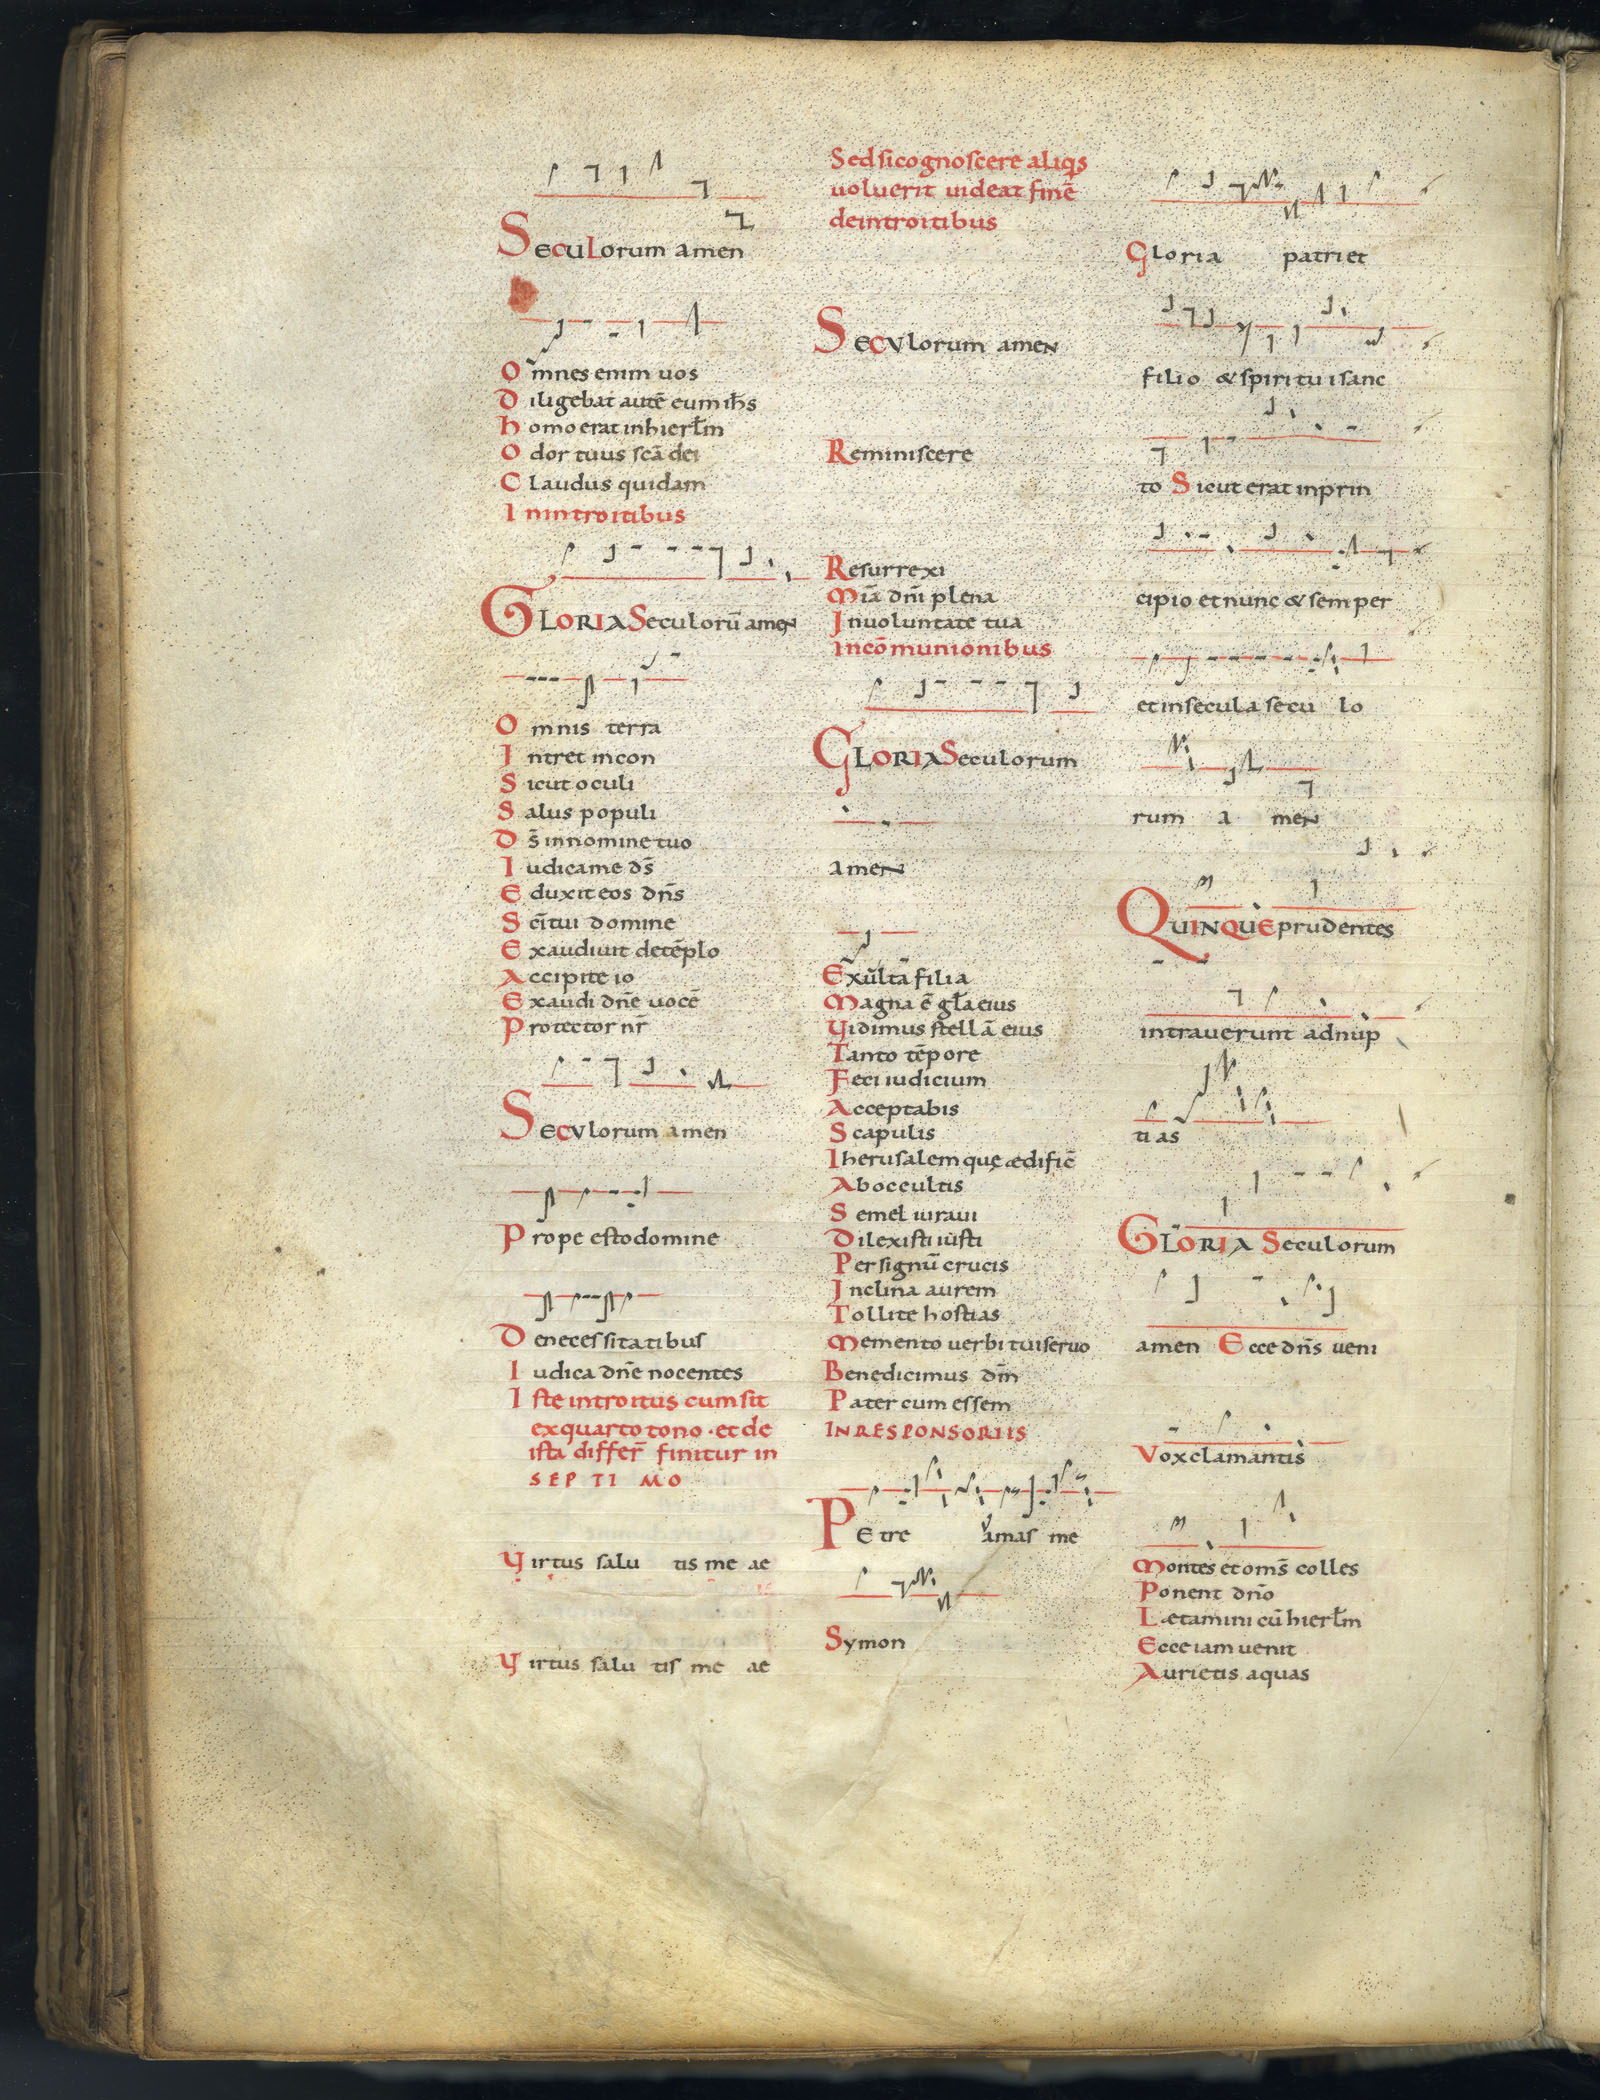 Seculorum amen
Omnes enim uos
Diligebat autē eum ih̄s
homo erat inhierłm
Odor tuus scā dei
Claudus quidam
Inintroitibus
GLORIA Seculorū amen
Omnis terra
Intret incon
Sicut oculi
Salus populi
Ds̄ innomine tuo
Iudicame ds̄
Eduxit eos dn̄s
Sci̅tui domine
Exaudiuit detēplo
Accipite io
Exaudi dn̄e uocē
Protector nr̄
Secvlorum amen
Prope estodomine
Denecessitatibus
Iudica dn̄e nocentes
Iste introitus cumsit
exquarto tono · et de
ista differ̄ finitur in
SEPTIMO
Yirtus salu tis me ae
Yirtus salu tis me ae
Sedsicognoscere aliqs
uoluerit uideat finē
deintroitibus
Secvlorum amen
Reminiscere
Resurrexi
Miā dn̄i plena
Inuoluntate tua
incōmunionibus
GLORIA Seculorum
amen
Exultā filia
Magna ē gła eius
Yidimus stellā eius
Tanto tēpore
Feci iudicium
Acceptabis
Scapulis
Iherusalem quę ædificē
Aboccultis
Semel iuraui
Dilexisti iusti
Persignū crucis
Inclina aurem
Tollite hostias
Memento uerbi tuiseruo
Benedicimus dm̄
Pater cum essem
INRESPONSORIIS
Petre amas me
Symon
Gloria patri et
filio & spiritui sanc
to Sicut erat inprin
cipio et nunc & semper
et insecula secu lo
rum a men
QUINQUE prudentes
intrauerunt adnup
tias
GLORIA Seculorum
amen Ecce dn̄s veni
Voxclamantis
Montes et oms̄ colles
Ponent dn̄o
Lætamini cū hierłm
Ecce iam uenit
Aurietis aquas